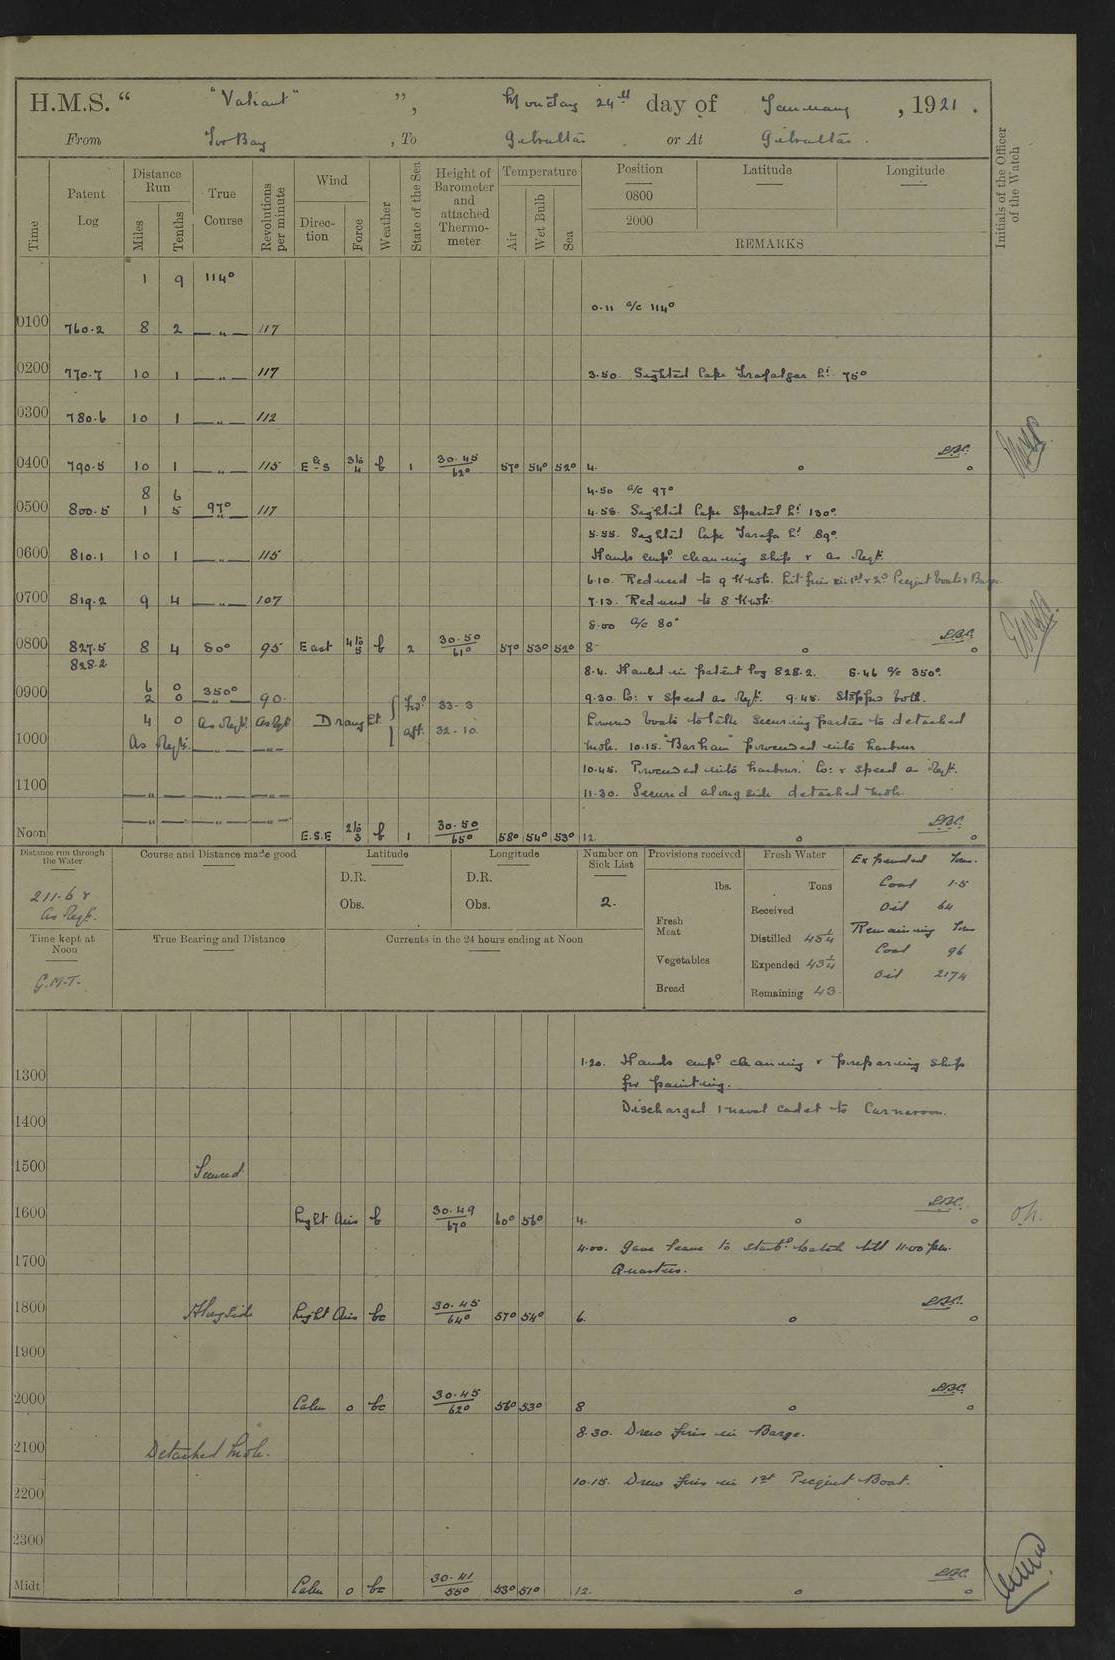 H.M.S. " "Valiant" ", Monday 24th day of January, 1921.
From Tor Bay, To Gibraltar or At Gibraltar.
Time
Patent Log
Distance Run
Miles
Tenths
True Course
Revolutions per minute
Wind
Direction
Force
Weather
State of the Sea
Height of Barometer and attached Thermometer
Temperature
Air
Wet Bulb
Sea
Position
0800
2000
Latitude
Longitude
REMARKS
Initials of the Officer of the Watch
1 9 114°
0.11 a/c 114°
0100 760.2 8 2 " 117
0200 770.7 10 1 " 117 3.50. Sighted Cape Trafalgar Lt. 75°
0300 780.6 10 1 " 112
0400 790.5 10 1 " 115 E & S 3 to 4 b 1 30.45 62° 57° 54° 52° 4.
8 6 4.50 a/c 97°
0500 800.5 1 5 97° " 117 4.58. Sighted Cape Spartel Lt. 130°.
5.55. Sighted Cape Tarifa Lt. 89°.
0600 810.1 10 1 " 115 Hands empd. cleaning ship & as Reqt.
6.10. Reduced to 9 Knots. Lit fires in 1st & 2nd Picquet boats & Barge
0700 819.2 9 4 " 107 7.13. Reduced to 8 Knots.
8.00 a/c 80°
0800 827.5 8 4 80° 95 East 4 to 5 b 2 30.50 61° 57° 53° 52° 8
828.2 8.4. Hauled in patent log 828.2. 8.46 a/c 350°.
0900 6 0 2 0 350° 90. 9.30. Co: & speed as Reqt. 9.45. Stopped both.
4 0 as Reqt. as Reqt. Draught { Ford. 33-3 Lowered boats to take securing parties to detached
1000 As Reqt. " " aft. 32-10. mole. 10.15. "Barham" proceeded into harbour
10.45. Proceeded into harbour. Co: & speed as Reqt.
1100 " " " 11.30. Secured alongside detached mole.
Noon " " " E.S.E 2 to 3 b 1 30.50 65° 58° 54° 53° 12.
Distance run through the Water
211.6 & as Reqt.
Time kept at Noon
G.M.T.
Course and Distance made good
True Bearing and Distance
Latitude
D.R.
Obs.
Longitude
D.R.
Obs.
Currents in the 24 hours ending at Noon
Number on Sick List
2.
Provisions received
lbs.
Fresh Meat
Vegetables
Bread
Fresh Water
Tons
Received
Distilled 45¼
Expended 43¼
Remaining 43.
Expended Tons.
Coal 1.5
Oil 64
Remaining Tons
Coal 96
Oil 2174
1.20. Hands empd. cleaning & preparing ship
1300 for painting.
Discharged 1 naval cadet to Carnarvon.
1400
1500 Secured
1600 Light Airs b 30.49 67° 60° 56° 4.
4.00. Gave leave to starbd. watch till 11.00 p.m.
1700 Quarters.
1800 Alongside Light Airs bc 30.45 64° 57° 54° 6.
1900
2000 Calm 0 bc 30.45 62° 56° 53° 8
8.30. Drew fires in Barge.
2100 Detached Mole.
10.15. Drew fires in 1st Picquet Boat.
2200
2300
Midt Calm 0 bc 30.41 55° 53° 51° 12.